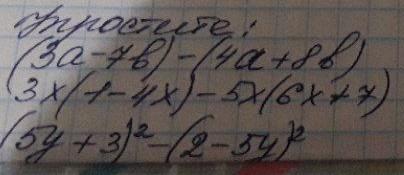 Упростите:
(3а-7в)-(4а+8в)
3x(1-4x)-5x(6x+7)
(5y+3)²-(2-5y)²